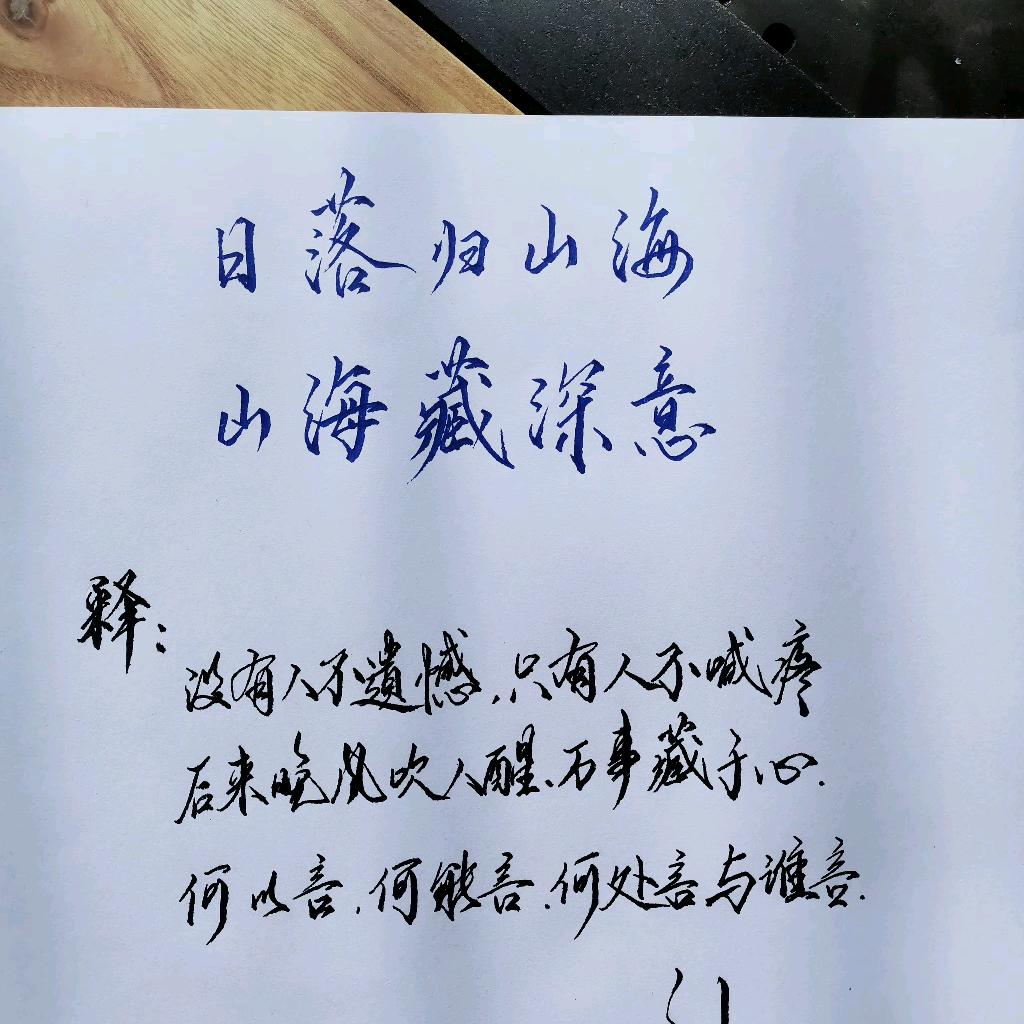 日落归山海
山海藏深意
释：
没有人不遗憾，只有人不喊疼
后来晚风吹人醒、万事藏于心.
何以言，何能言.何处言与谁言.